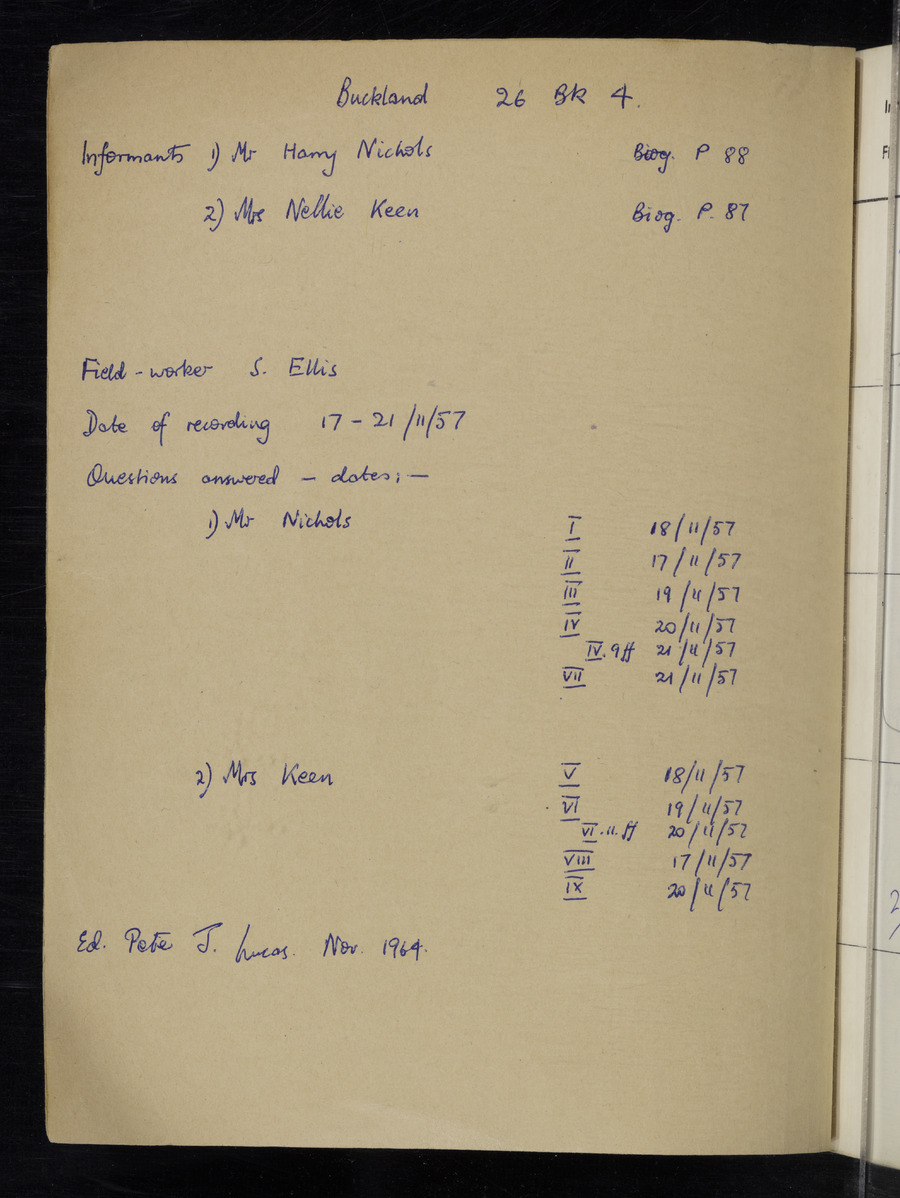 Buckland 26 Bk 4.
Informants 1) Mr Harry Nichols Biog. P 88
2) Mrs Nellie Keen Biog. P. 87
Field-worker S. Ellis
Date of recording 17 - 21/11/57
Questions answered - dates: -
1) Mr Nichols I 18/11/57
II 17/11/57
III 19/11/57
IV 20/11/57
IV. 9 ff 21/11/57
VII 21/11/57
2) Mrs Keen V 18/11/57
VI 19/11/57
VI. 11. ff 20/11/57
VIII 17/11/57
IX 20/11/57
Ed. Peter J. Lucas. Nov. 1964.